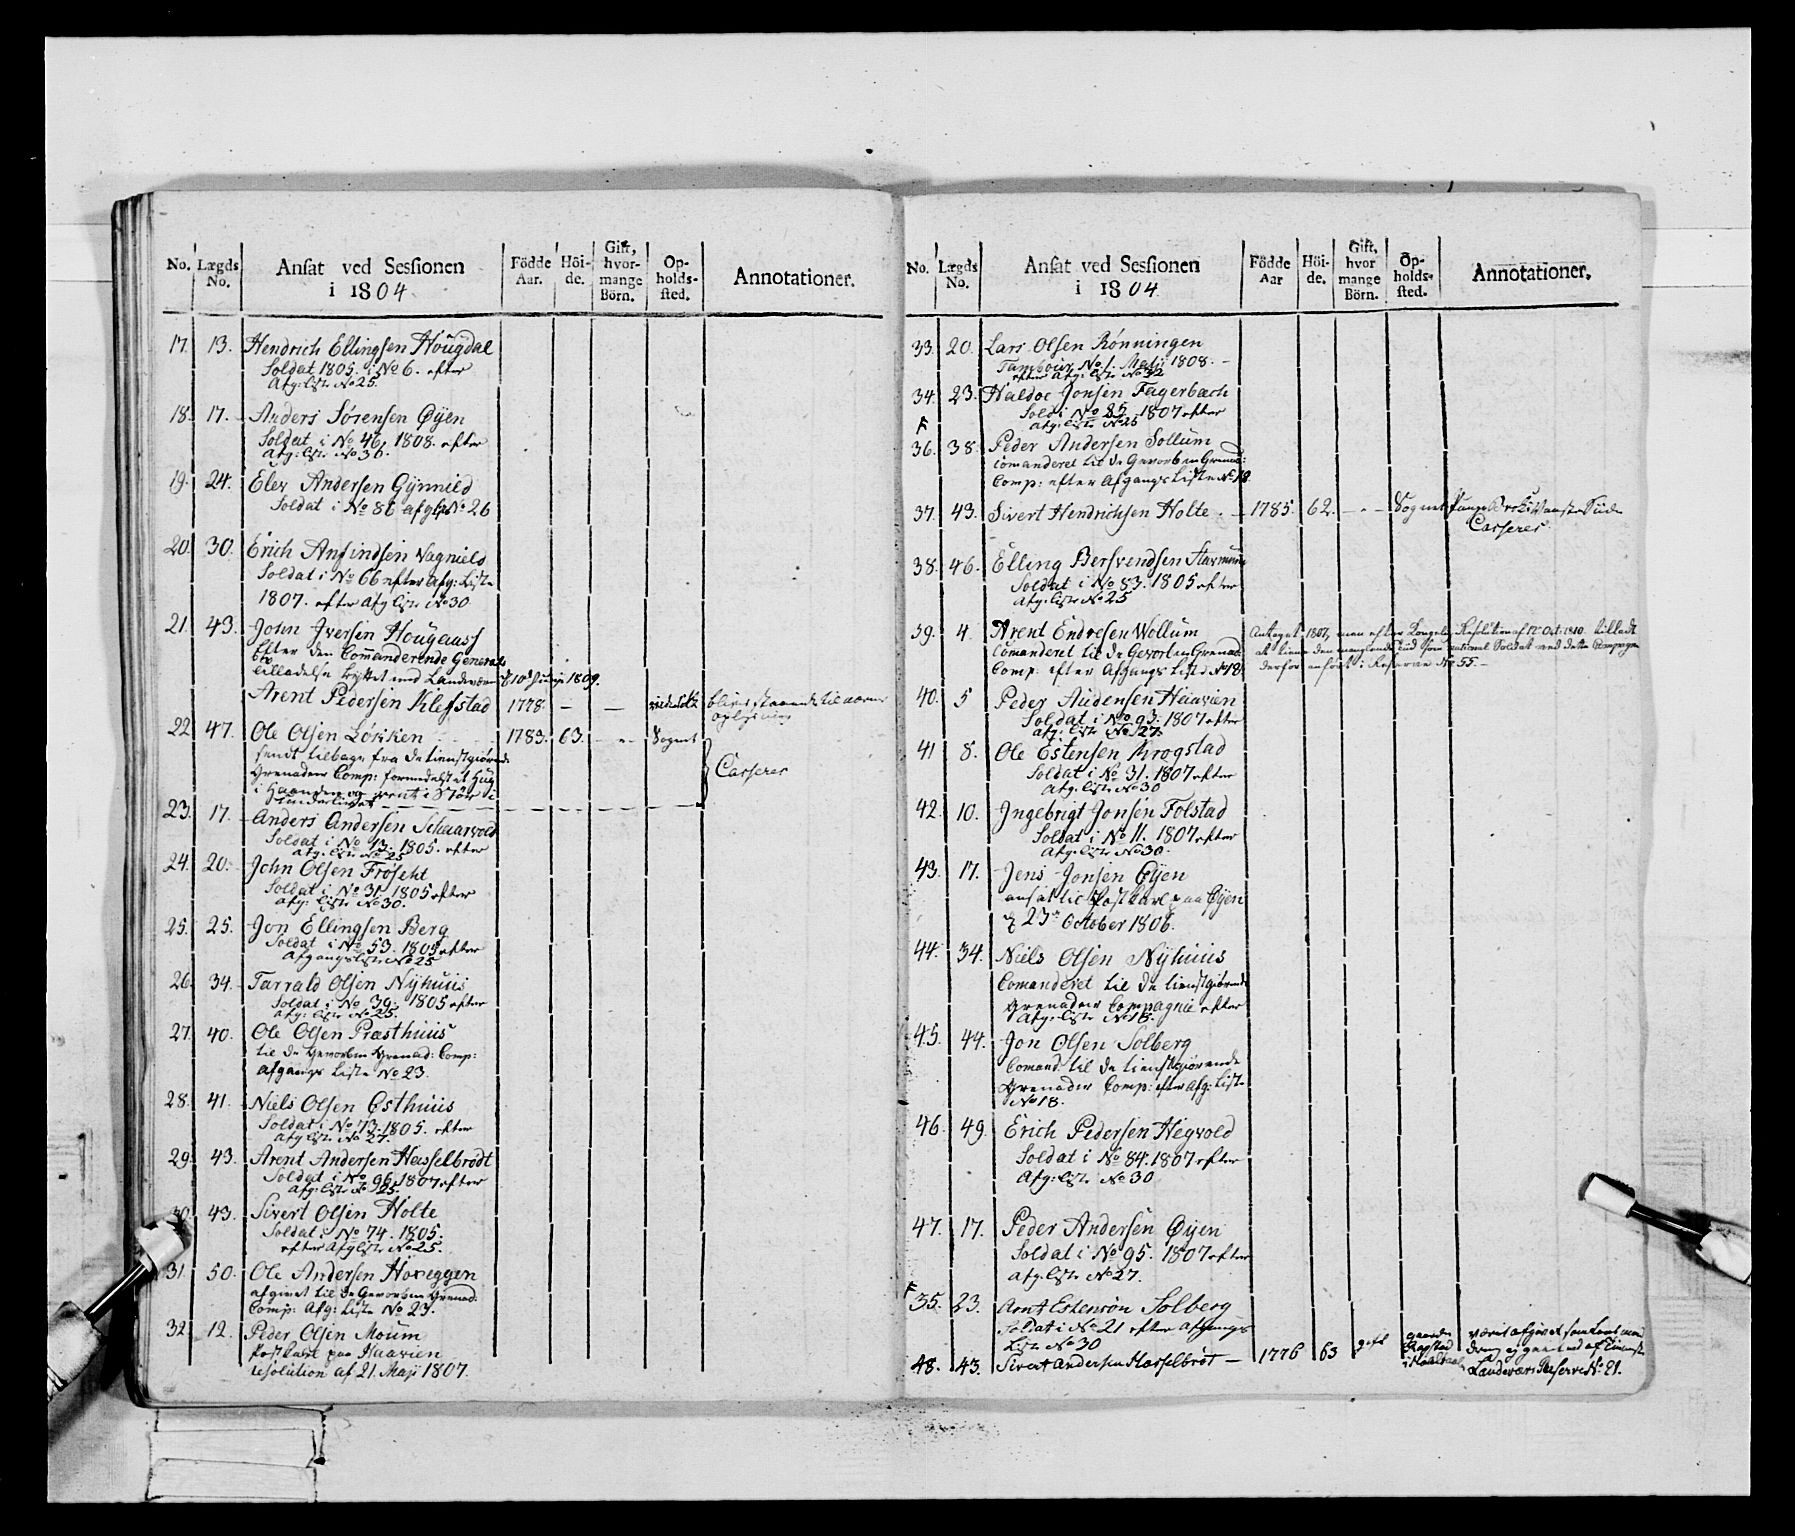 No. Lægds No. Ansat ved Sessionen i 1804. Födde Aar. Höi-de. Gift, hvor-mange Börn. Op-holds-sted. Annotationer.
17. 13. Hendrich Ellingsen Hougdal
Soldat 1805. i No 6. efter
Afg: liste No 25.
18. 17. Anders Sørensen Øyen
Soldat i No 46. 1808. efter
Afg: liste No 36.
19. 24. Elev Andersen Gynnild
Soldat i No 86 afg: No 26
20. 30. Erich Anfindsen Vagnild
Soldat i No 66 efter Afg: Liste
1807. efter Afg liste No 30
21. 43. John Iversen Hougauss
Efter den Commanderende Generals
tilladelse byttet med Landeværn 10de Junii 1809.
Arent Pedersen Klefstad 1778. — — bliver staaende til
oplysning
22 47. Ole Olsen Løkken 1783. 63. - - Sognet
sendt tilbage fra de tienstgiørende
Grenadeer Comp: formedelst et Hug Casseres
i Haanden og
underlivet
23. 17. Anders Andersen Schaarvold
Soldat i No 13. 1805. efter
Afg: liste No 25
24. 20. John Olsen Frøseht
Soldat i No 31. 1805 efter
Afg: liste No 30.
25. 25. Jon Ellingsen Berg
Soldat i No 53. 1805 efter
Afgangsliste No 25
26. 34. Tarrald Olsen Nyhuus
Soldat i No 39. 1805 efter
Afg: liste No 25.
27. 40. Ole Olsen Præsthuus
til de Gevorbne Grenad: Comp:
afgangs Liste No 23.
28. 41. Niels Olsen Østhuus
Soldat i No 73. 1805. efter
Afg liste No 27.
29. 43. Arent Andersen Hasselbrødt
Soldat i No 96. 1807 efter
Afg: liste No 25.
30. 43. Sivert Olsen Holte
Soldat i No 74. 1805.
efter Afg liste No 25.
31. 50. Ole Andersen Hoveggen
afgivet til de Gevorbne Grenad:
Comp: Afg: Liste No 23.
32. 12. Peder Olsen Moum
Postkarl paa Haavien
resolution af 21. Maji 1807.
No. Lægds No. Ansat ved Sessionen i 1804 Födde Aar Höi-de. Gift, hvor mange Börn. Op-holds-sted. Annotationer.
33. 20. Lars Olsen Rønningen
Tambour No 1. Maij 1808.
efter Afg: liste No 32
34. 23. Haldoe Jonsen Fagerbach
Sold i No 85. 1807 efter
Afg: liste No 25
F
36. 38. Peder Andersen Sollum
Comanderet til de Gevorbne Grenad:
Comp: efter Afgangs Liste No 18.
37. 43. Sivert Hendrichsen Holte. — 1785. 62. - - - Sognet
Casseres
38. 46. Elling Bersvendsen Stavmoen
Soldat i No 83. 1805 efter
Afg: liste No 25
39. 4. Arent Endresen Wollum Antaget 1807, men efter Kongelig Resolution af 12te Oct: 1810. tilladt
Comanderet til de Gevorbne Grenad: at tiene den manglende tid som national Soldat ved dette Compagnie
Comp: efter Afgangs Liste No 18. derfor anført i Reserven No 55. —
40. 5 Peder Audensen Haavien
Soldat i No 93. 1807 efter
Afg: liste No 27.
41 8. Ole Estensen Krogstad
Soldat i No 31. 1807 efter
Afg: liste No 30
42. 10. Ingebrigt Jonsen Folstad
Soldat i No 11. 1807 efter
Afg: liste No 30.
43. 17. Jens Jonsen Øyen
ansat til Postkarl paa Øyen
d 23de October 1806.
44. 34. Niels Olsen Nyhuus
Comanderet til de tienstgiørende
Grenadeer Compagnie efter
Afg: liste No 18.
45. 44. Jon Olsen Solberg
Comand. til de tienstgiørende
Grenadeer Comp: efter Afg: Liste
No 18.
46. 49. Erich Pedersen Hegvold
Soldat i No 84. 1807 efter
Afg: liste No 30
47. 17. Peder Andersen Øyen
Soldat i No 95. 1807 efter
Afg: liste No 27.
F
35. 23. Arnt Estensøn Solberg
Soldat i No 21 efter Afgangs
Liste No 30
48. 43. Sivert Andersen Hasselbrøt — 1776 63 gift gaarden Krogstad
Landeværns Reserve No 21.